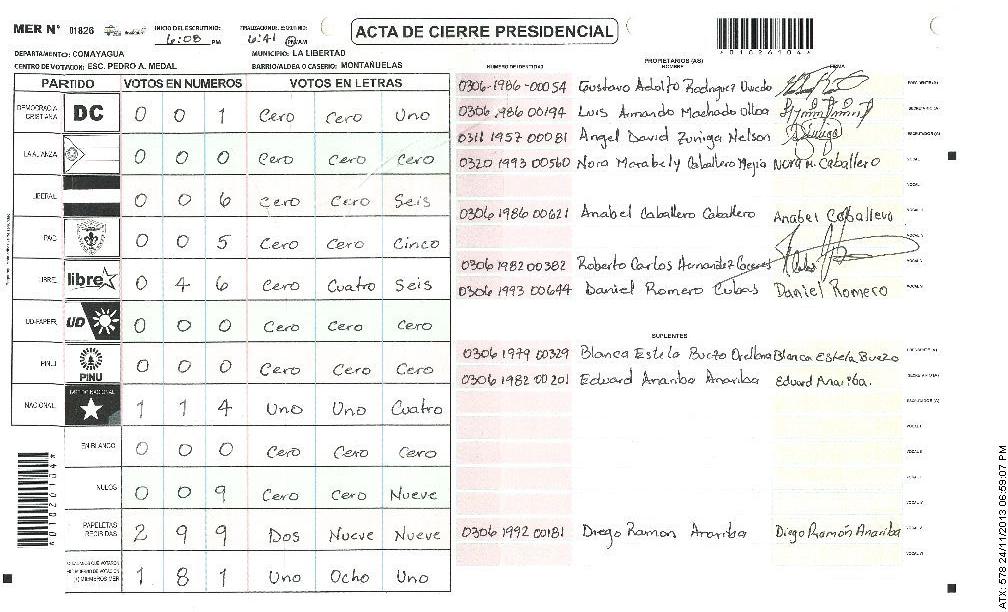 MER N° 01826
INICIO DEL ESCRUTINIO: 6:08 PM
6:41 PM/AM
ACTA DE CIERRE PRESIDENCIAL
01826104
DEPARTAMENTO: COMAYAGUA
MUNICIPIO: LA LIBERTAD
CENTRO DE VOTACION: ESC. PEDRO A. MEDAL
BARRIO/ALDEA O CASERIO: MONTAÑUELAS
PARTIDO VOTOS EN NUMEROS VOTOS EN LETRAS
DEMOCRACIA CRISTIANA DC 0 0 1 Cero Cero Uno
LA ALIANZA 0 0 0 Cero Cero Cero
LIBERAL 0 0 6 Cero Cero Seis
PAC 0 0 5 Cero Cero Cinco
LIBRE libre 0 4 6 Cero Cuatro Seis
UD-FAPER UD 0 0 0 Cero Cero Cero
PINU PINU 0 0 0 Cero Cero Cero
NACIONAL PARTIDO NACIONAL 1 1 4 Uno Uno Cuatro
EN BLANCO 0 0 0 Cero Cero Cero
NULOS 0 0 9 Cero Cero Nueve
PAPELETAS RECIBIDAS 2 9 9 Dos Nueve Nueve
1 8 1 Uno Ocho Uno
PROPIETARIOS (AS)
NUMERO DE IDENTIDAD NOMBRE FIRMA
0306-1986-00054 Gustavo Adolfo Rodriguez
0306 1986 00194 Luis Armando Machado Ulloa
0311 1957 00081 Angel David Zuniga Nelson Zuniga
0320 1993 00560 Nora Marabely Caballero Mejia Nora M. Caballero
0306 1986 00621 Anabel Caballero Caballero Anabel Caballero
0306 1982 00382 Roberto Carlos Hernandez Caceres
0306 1993 00644 Daniel Romero Cubas Daniel Romero
SUPLENTES
0306 1979 00329 Blanca Estela Buezo Orellana Blanca Estela Buezo
0306 1982 00201 Eduard Anariba Anariba Eduard Anariba.
0306 1992 00181 Diego Ramon Anariba Diego Ramón Anariba
ATX: 578 24/11/2013 06:59:07 PM